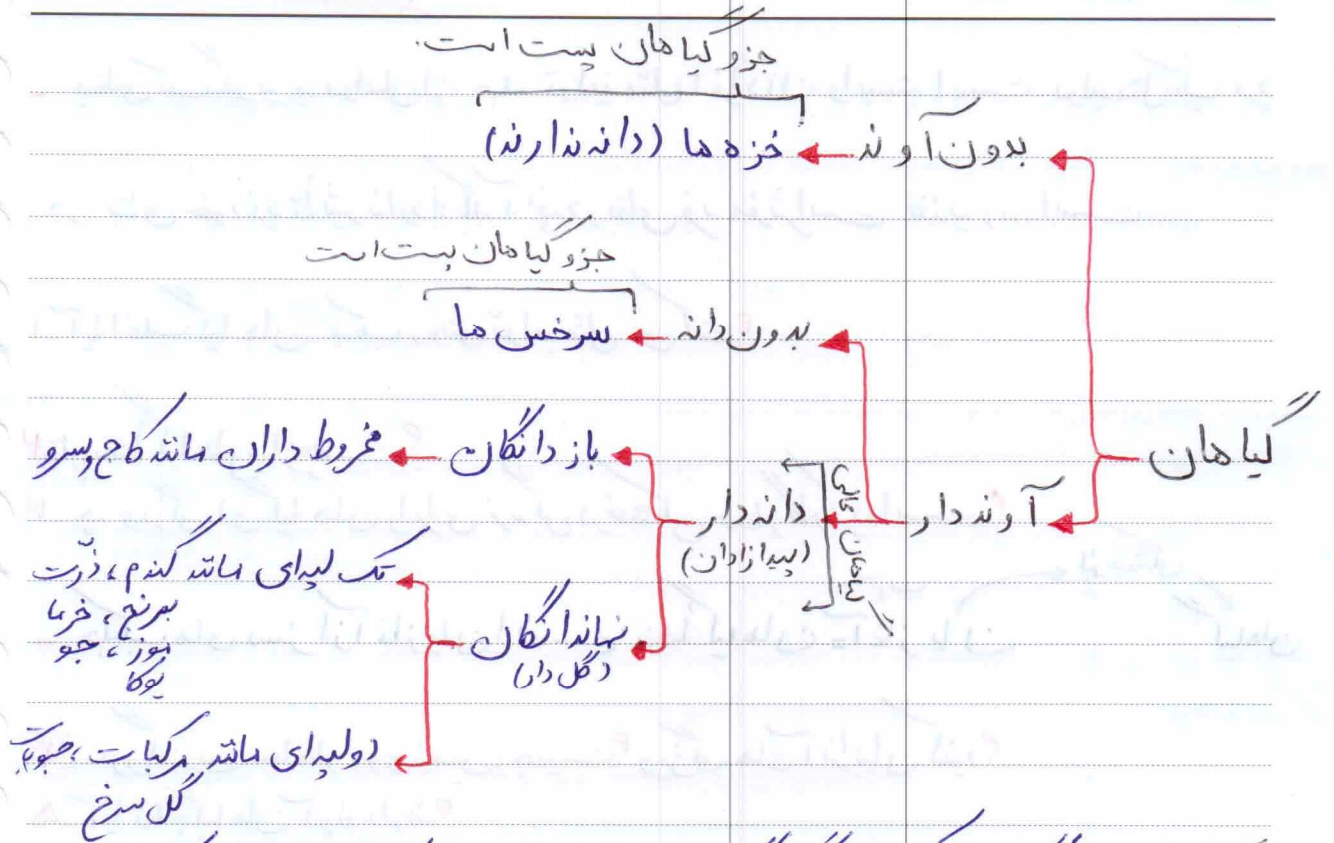 جزو گیاهان پست است.
بدون آوند ← خزه ها (دانه ندارند)
جزو گیاهان پست است
بدون دانه ← سرخس ها
گیاهان
آونددار
گیاهان عالی
دانه دار
(پیدازادان)
باز دانگان ← مخروط داران مانند کاج و سرو
نهاندانگان
(گل دار)
تک لپه ای مانند گندم، ذرّت
برنج، خرما
موز، جو
یوکا
دولپه ای مانند مرکبات، حبوبات
گل سرخ